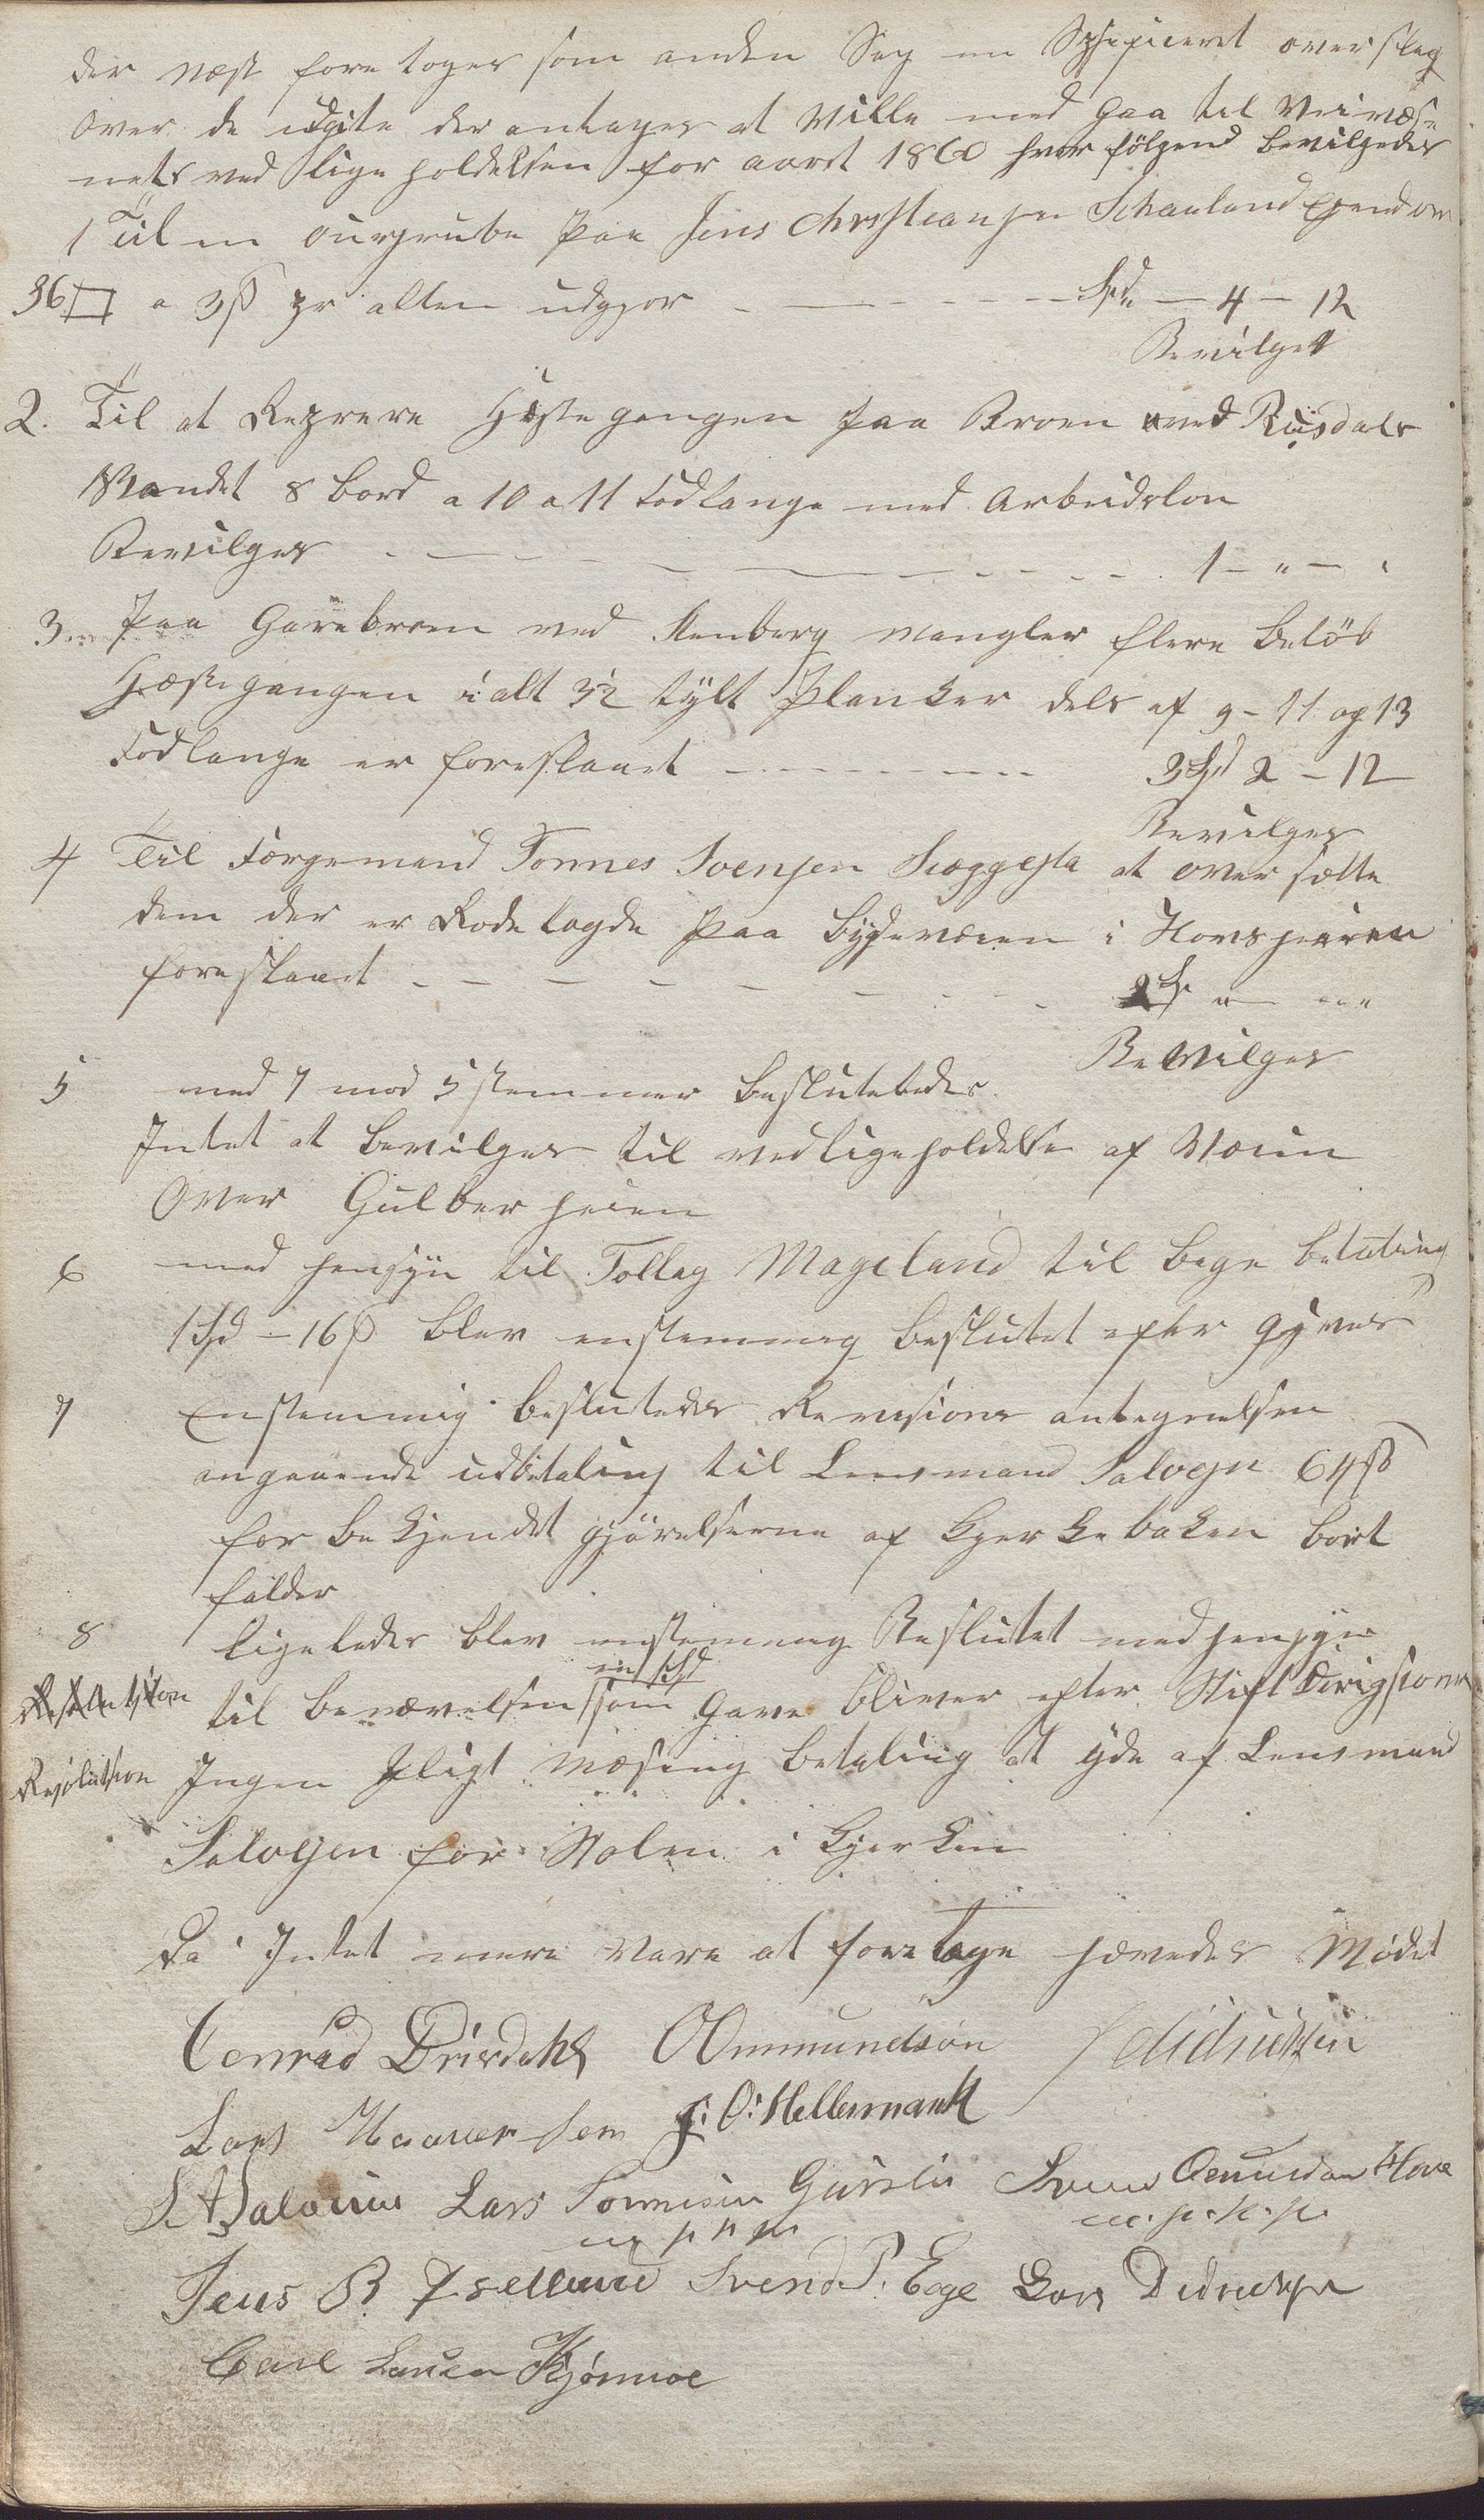 der næst foretoges som anden Sag en Spesiceret overslag
over de udgite der antages at ville med gaa til Veivæse
nets ved lige holdelsen for aaret 1860 hvor fölgend bevilgedes
1 Til en ourgrube paa Jens Christiansen Schaaland Ejendom
36□ a 3ß pr alten udgjor - - - - - Spd. - 4 - 12
Bevilget
2. Til at Reprere Hæstegangen paa Broen ved Risdals
Vandet 8 bord a 10 a 11 fod lange med Arbeidslon
Bevilges - - - - - 1 - " - "
3 Paa Garebroen ved Stenberg mangler flere Belöb
Hæstegangen i alt 3½ tylt Planker dels af 9-11 og 13
Fod lange er foreslaaet - - - - - 3 Spd 2 - 12
Bevilges
4 Til Forgemand Tonnes Svensen Skeggesta at over sætte
dem der er Rodelagde paa bygdeveien i Hovsheien
foreslaaet - - - - - 2 Sp " - " "
Bevilges
5 med 7 mod 5 stemmer beslutetedes
Intet at bevilges til vedligeholdelse af Veien
over Gulberheien
6 med hensyn til Tollag Mageland til bage betaling
1 Spd - 16 ß blev enstemmig beslutet efter gives
7 Enstemmig besluteder Revisions antegnelsen
angaaende udbetaling til Lensmand Salvesen 64ß
for bekjendet gjörelserne af Kjerkebaken bort
falder
8 ligeledes blev enstemmig Beslutet med hensyn
til beværelsen som en Spd Gave bliver efter Stift Dirigsions
Resolutsion
Resolutsion Ingen pligt mæsing betaling at yde af Lensmand
Salvesen for Stolen i Kjerken
Da Intet mere vare at foretage hævedes Mödet
Conrad Drisdahl OOmmundsön Didriksen
Lars Haaversen J. O. Hellesmark
S A Salvesen Lars Tonnesen Gursli Svend Omundsen Hove
m. p. p. m. p. p. p.
Jens B Eselland Svend P. Ege Lars Didriksen
Carl Larsen Kjörmoe